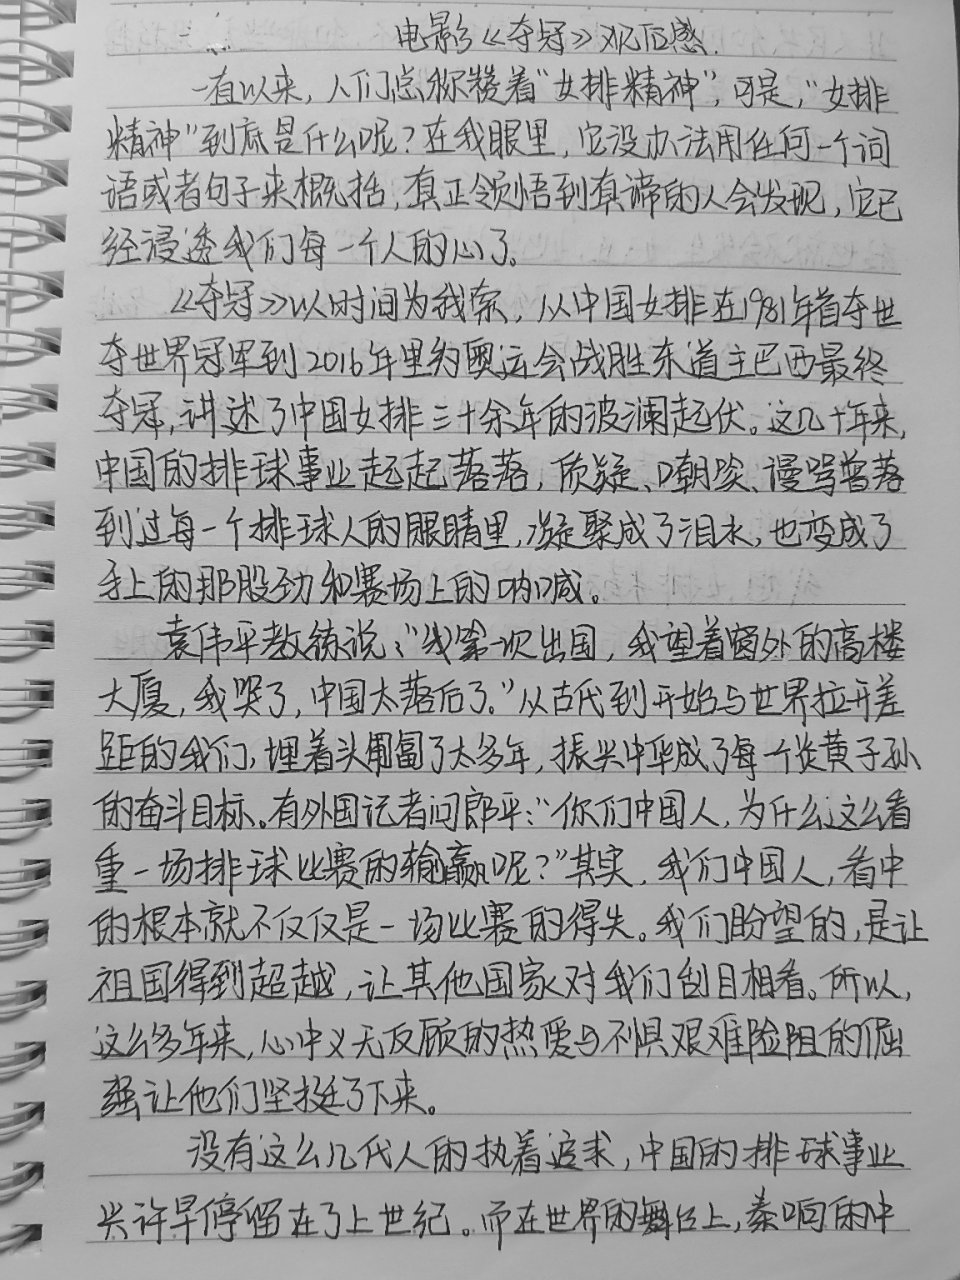 电影《夺冠》观后感.
一直以来，人们总称赞着“女排精神”，可是，“女排
精神”到底是什么呢？在我眼里，它没办法用任何一个词
语或者句子来概括，真正领悟到真谛的人会发现，它已
经浸透我们每一个人的心了。
《夺冠》以时间为线索，从中国女排在1981年首夺世
夺世界冠军到2016年里约奥运会战胜东道主巴西最终
夺冠，讲述了中国女排三十余年的波澜起伏。这几十年来，
中国的排球事业起起落落，质疑、嘲笑、谩骂曾落
到过每一个排球人的眼睛里，凝聚成了泪水，也变成了
手上的那股劲和赛场上的呐喊。
袁伟平教练说：“我第一次出国，我望着窗外的高楼
大厦，我哭了，中国太落后了。”从古代到开始与世界拉开差
距的我们，埋着头闱了太多年，振兴中华成了每一个炎黄子孙
的奋斗目标。有外国记者问郎平：“你们中国人，为什么这么看
重一场排球比赛的输赢呢？”其实，我们中国人，看中
的根本就不仅仅是一场比赛的得失。我们盼望的，是让
祖国得到超越，让其他国家对我们刮目相看。所以，
这么多年来，心中义无反顾的热爱与不惧艰难险阻的倔
强让他们坚挺了下来。
没有这么几代人的执着追求，中国的排球事业
兴许早停留在了上世纪。而在世界的舞台上，奏响的中